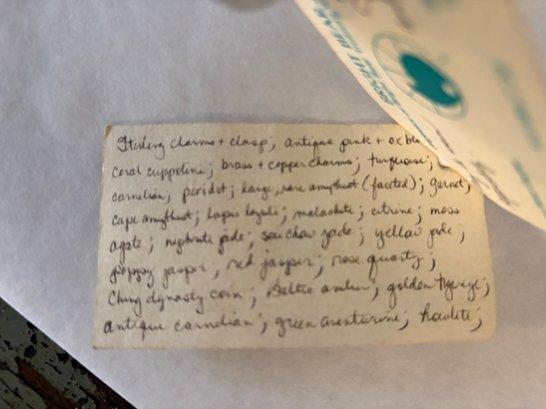 Sterling charms + clasp; antique pink + ox bl
coral cuppoline; brass + copper charms; turquoise;
carnelian; peridot; large, rare amythest (faceted); garnet;
cape amythest; lapis lazuli; malachite; citrine; moss
agate; nephrite jade; souchow jade; yellow jade;
poppy jasper, red jasper; rose quartz;
Ching dynasty coin; Baltic amber; golden tigereye;
antique carnelian; green aventurine; howlite;
BRIGHT BEADS